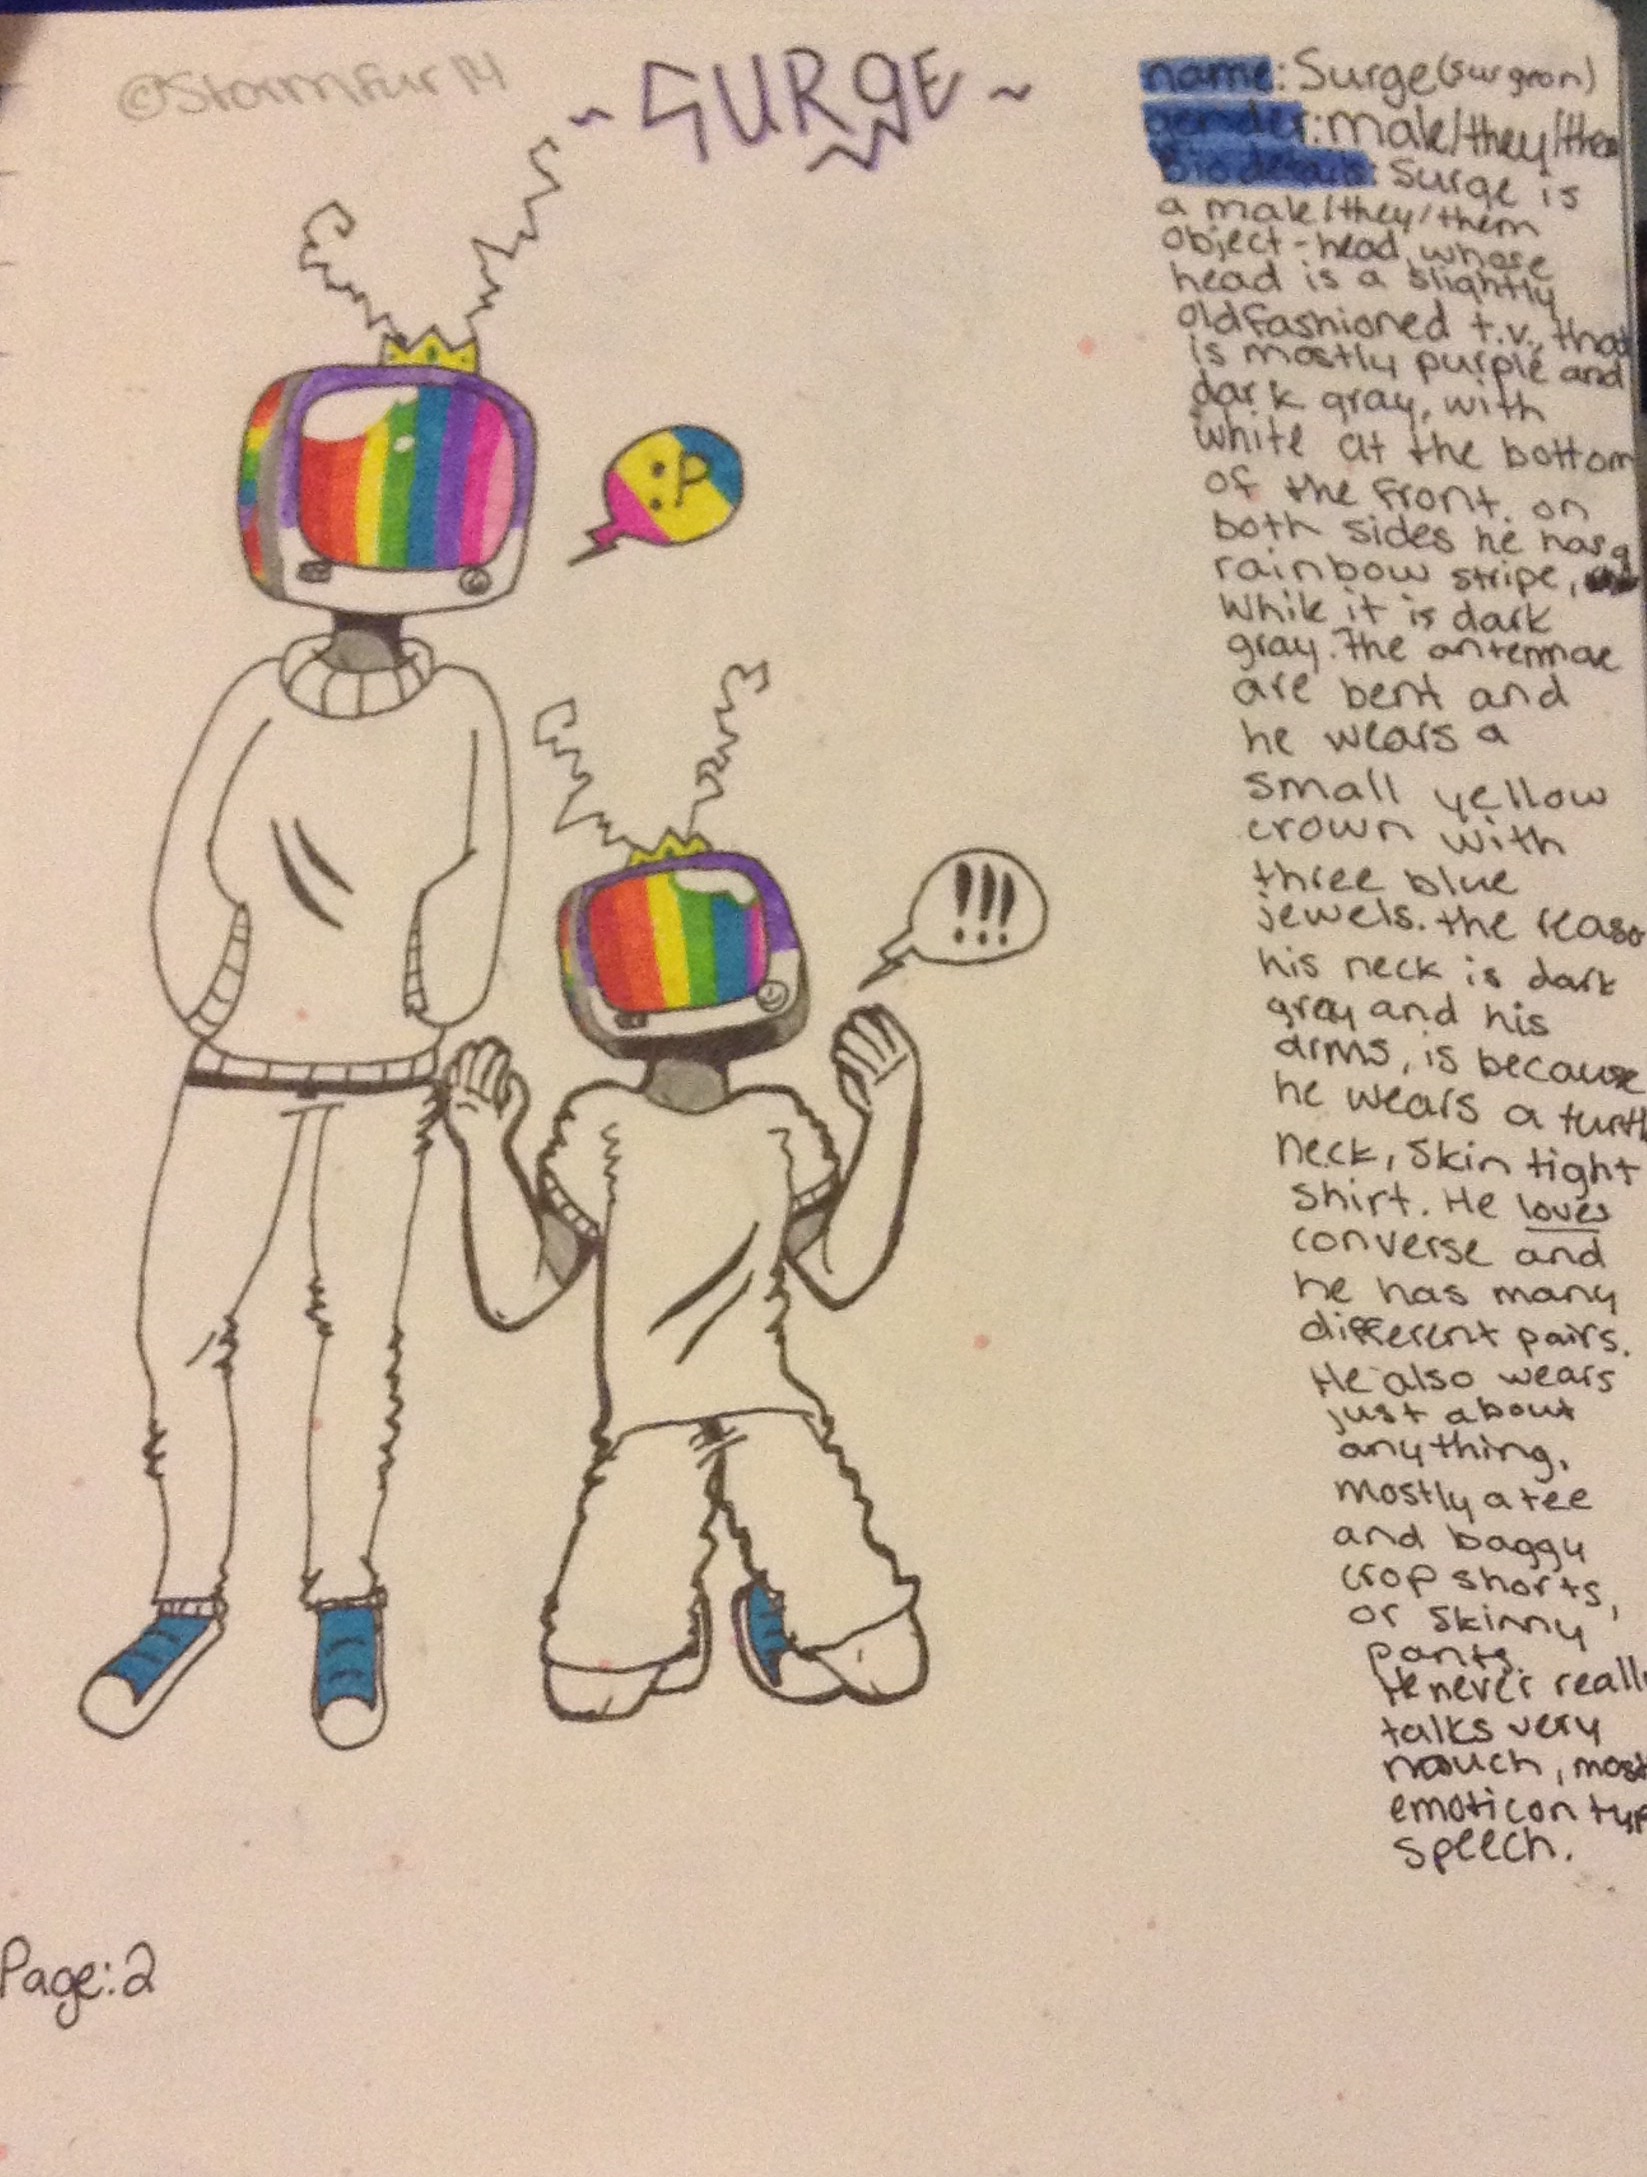 ©Stormfur14
~SURGE~
name: Surge(surgeon)
gender: male/they/them
Bio details: Surge is
a male/they/them
object-head, whose
head is a slightly
oldfashioned t.v., that
is mostly purple and
dark gray, with
white at the bottom
of the front. on
both sides he has a
rainbow stripe,
while it is dark
gray. The antennae
are bent and
he wears a
small yellow
crown with
three blue
jewels. the reaso
his neck is dark
gray and his
arms, is because
he wears a turtl
neck, skin tight
shirt. He loves
converse and
he has many
different pairs.
He also wears
just about
anything,
mostly a tee
and baggy
crop shorts,
or skinny
pants.
He never reall
talks very
much, most
emoticon typ
speech.
!!!
Page:2